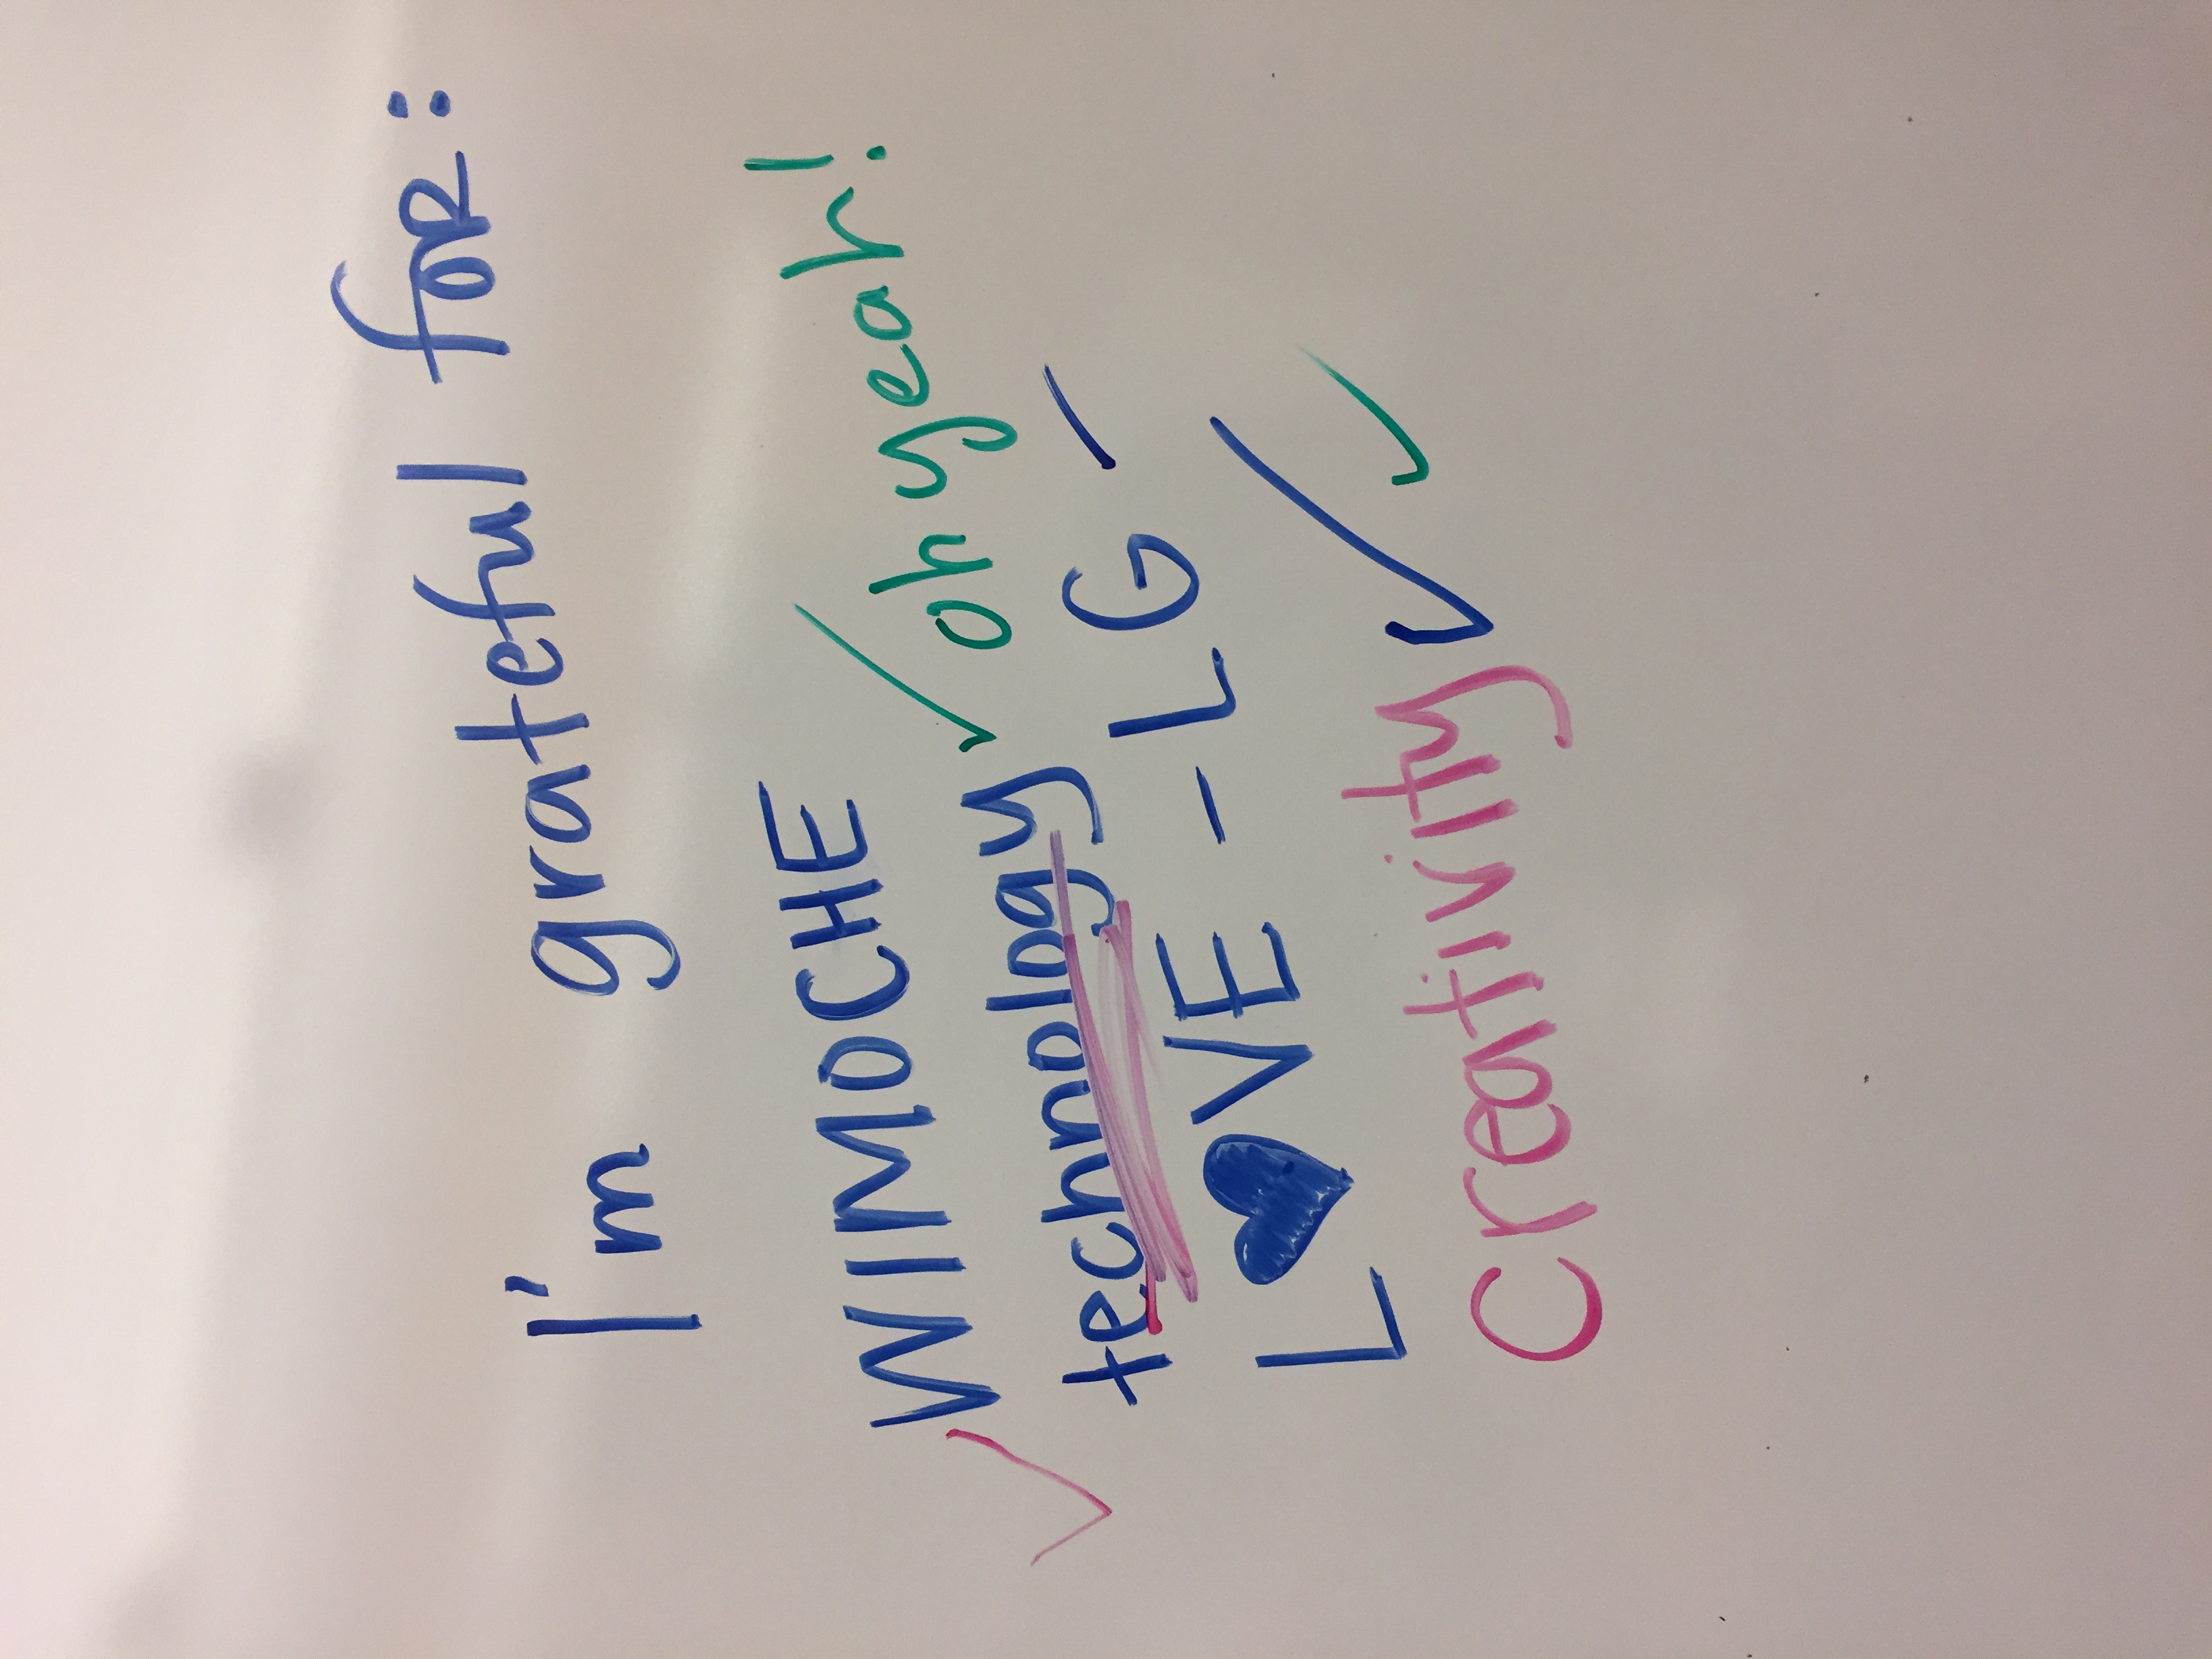 I'm grateful for:
WIMOCHE
technology ✓ oh yeah!
L♥VE - LG -
Creativity ✓✓